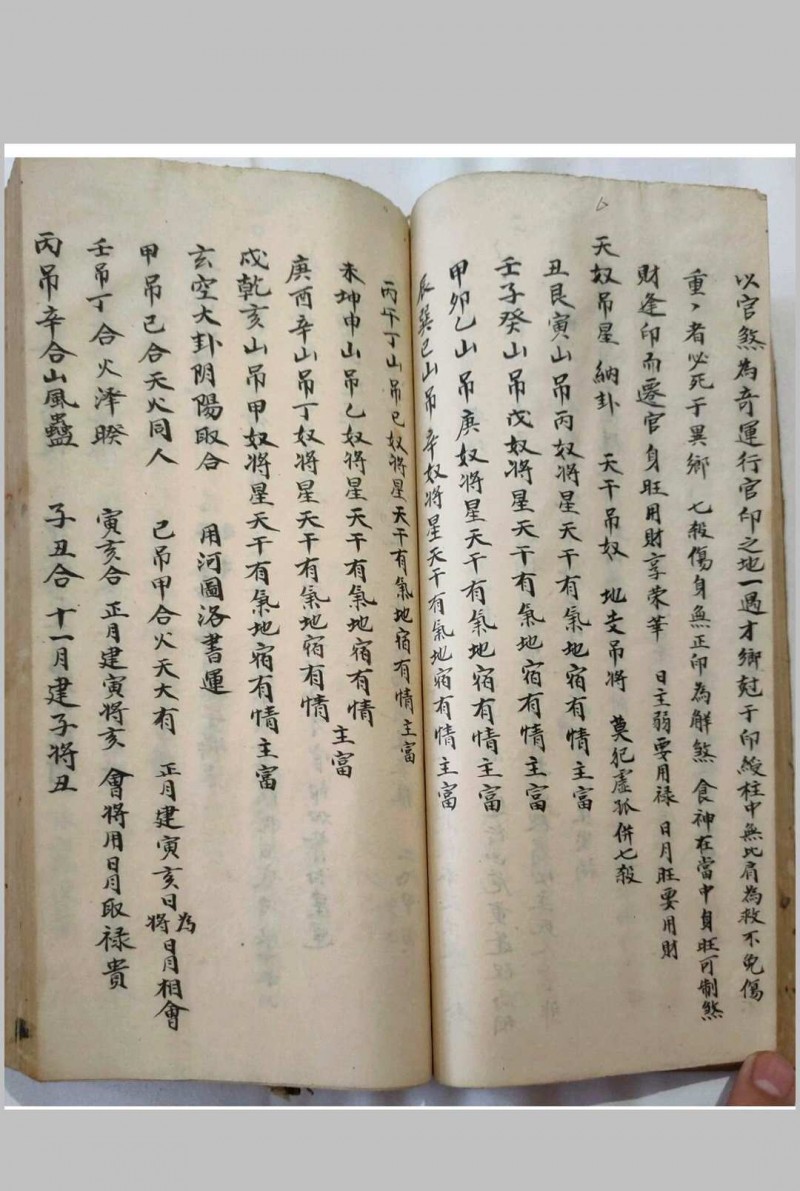 以官煞為奇運行官印之地一遇才鄉尅于印綬柱中無比肩為救不免傷
重重者必死于異鄉 七殺傷身無正印為解煞 食神在當中身旺可制煞
財逢印而遷官 身旺用財享荣華 日主弱要用禄 日月旺要用財
天奴吊星 納卦 天干吊奴 地支吊將 莫犯虛孤併七殺
丑艮寅山吊丙奴將星天干有氣地宿有情主富
壬子癸山吊戊奴將星天干有氣地宿有情主富
甲卯乙山吊庚奴將星天干有氣地宿有情主富
辰巽巳山吊辛奴將星天干有氣地宿有情主富
丙午丁山吊己奴將星天干有氣地宿有情主富
未坤申山吊乙奴將星天干有氣地宿有情主富
庚酉辛山吊丁奴將星天干有氣地宿有情
戌乾亥山吊甲奴將星天干有氣地宿有情主富
玄空大卦阴陽取合 用河圖洛書運
甲吊己合天火同人 己吊甲合火天大有 正月建寅亥日將為日月相會
壬吊丁合火澤睽 寅亥合 正月建寅將亥 會將用日月取禄貴
丙吊辛合山風蠱 子丑合 十一月建子將丑